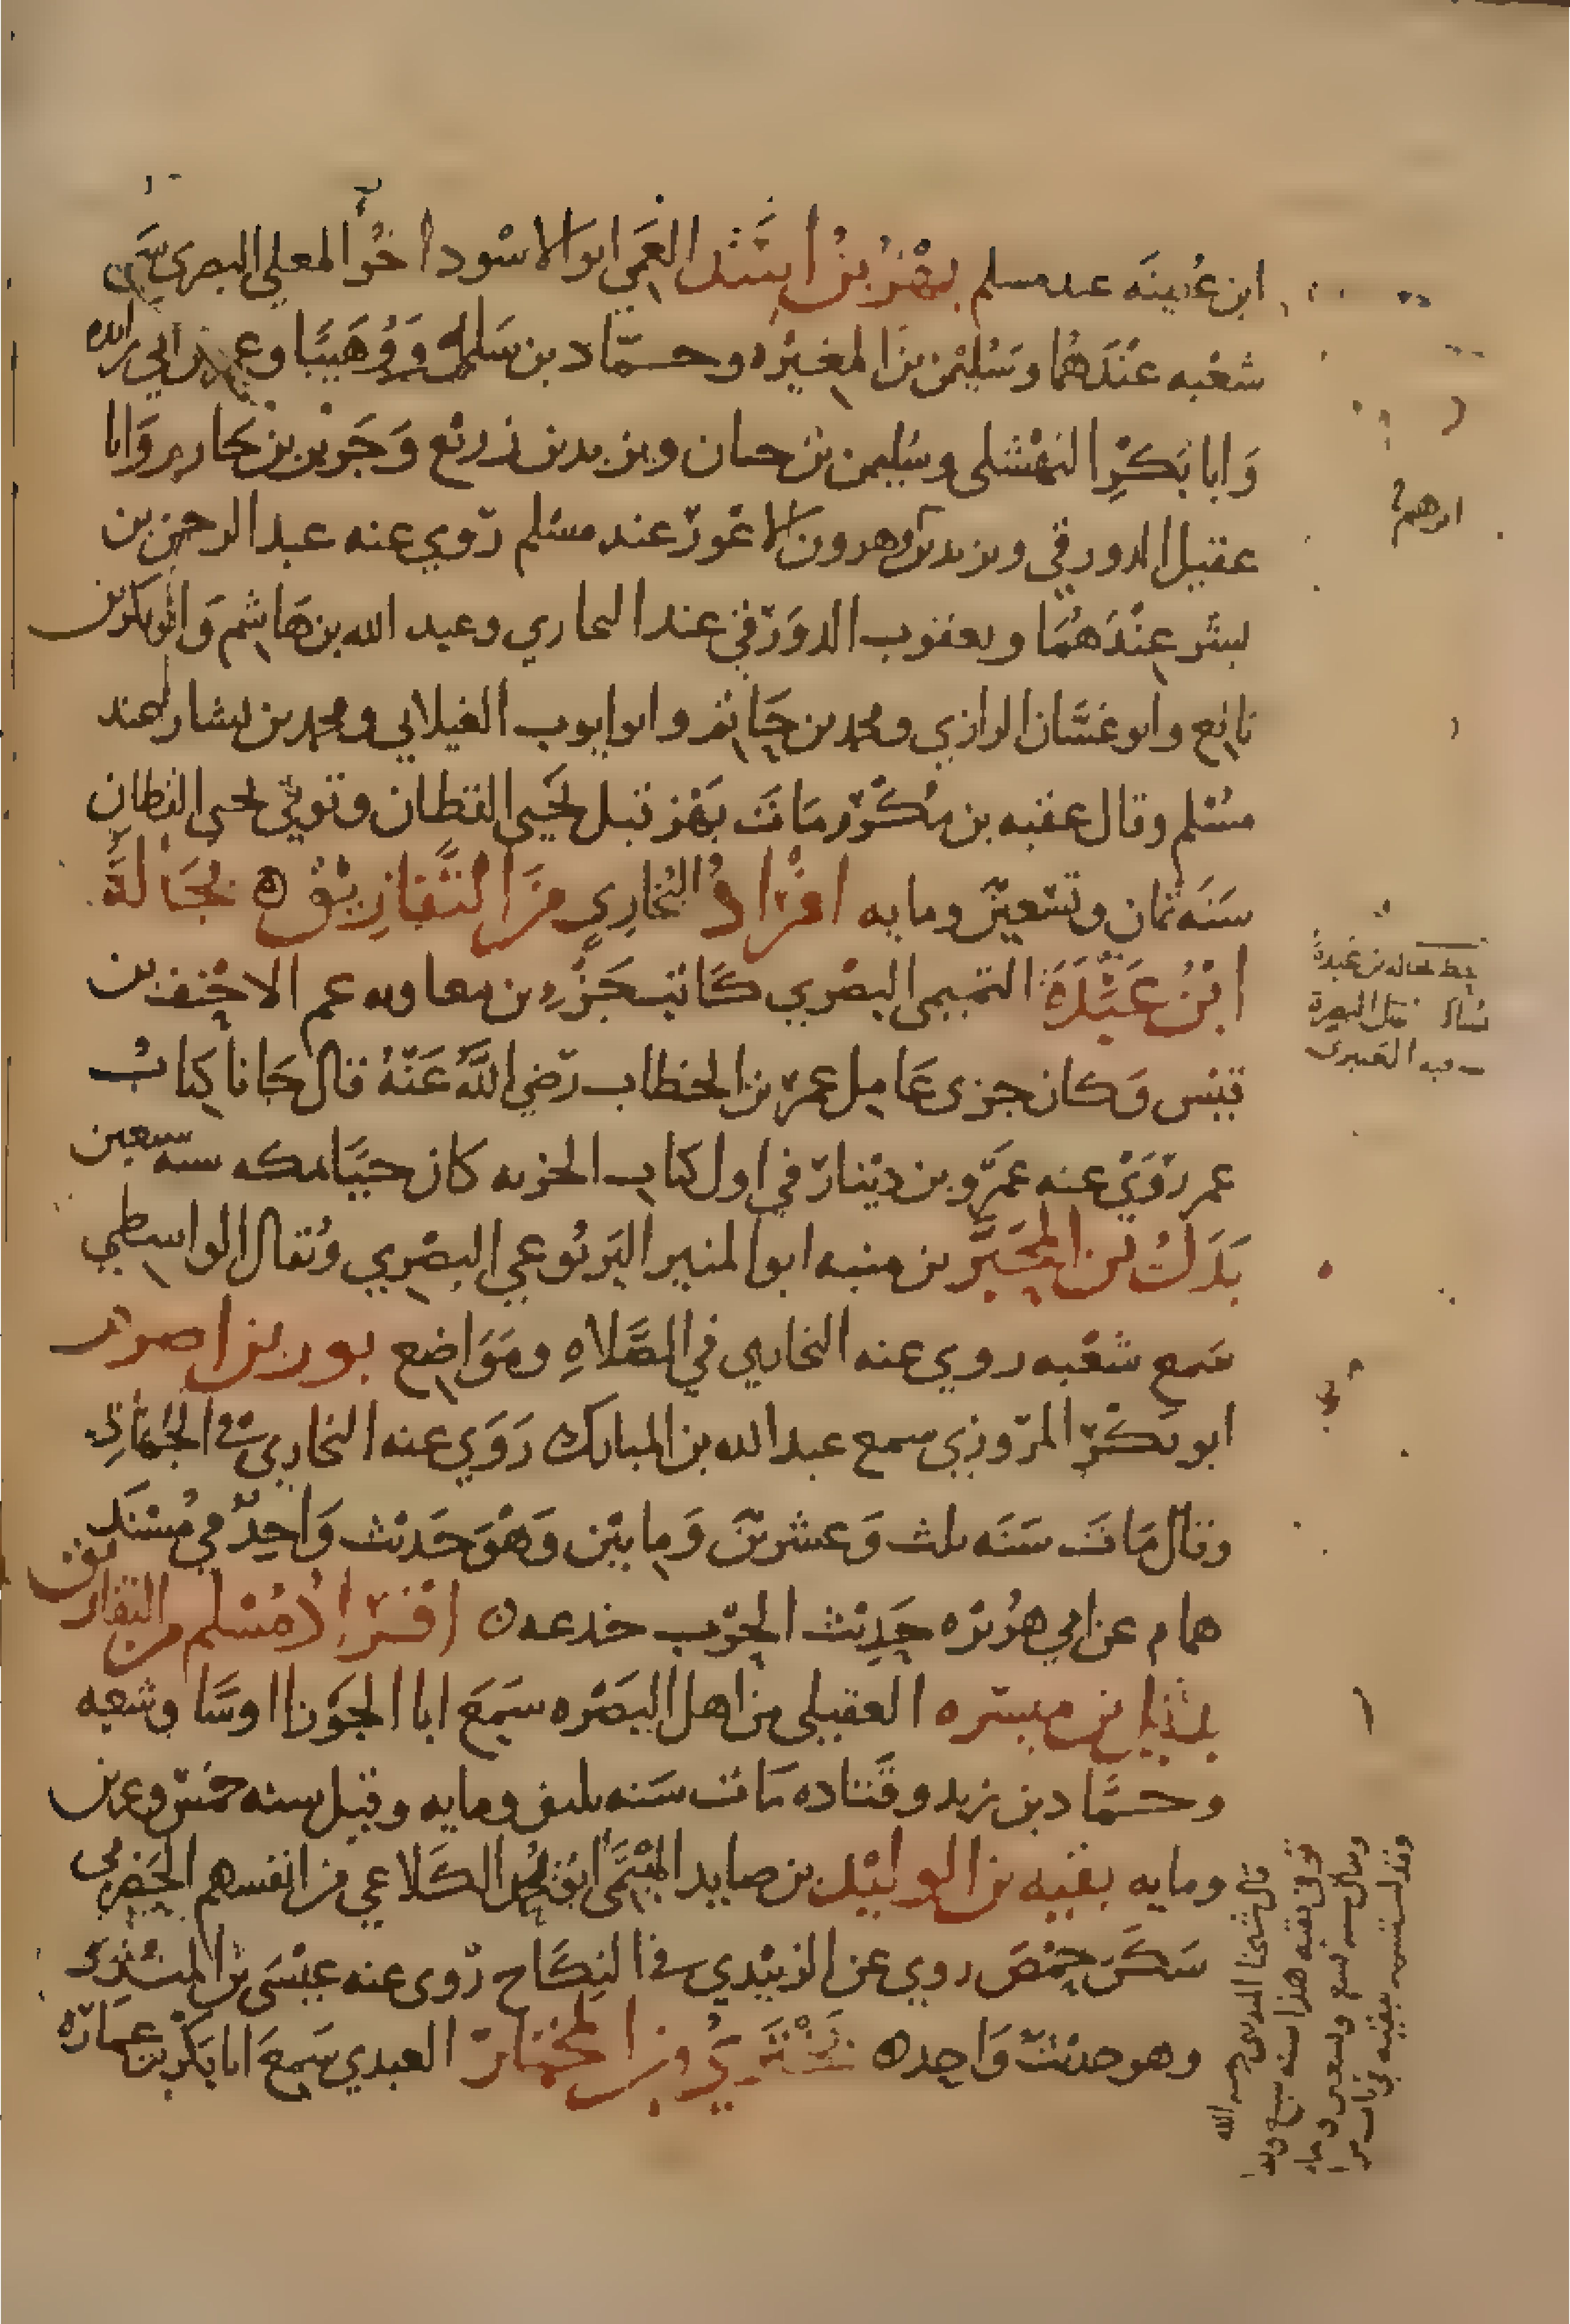 ابن عُيينَه عند مسلم بَهْزُ بنُ اسَد العَمي ابو الاسْود اخُو المعلي البصري سمع
شعْبه عنْدَهُما وسُليمٰن بن المغيْره وحمّاد بن سَلمه وَوُهَيبًا وعمر بن ابي زايده
وَابا بَكرٍ النهْشلي وسُليمن بن حيان ويزيد بن زريْع وَجَرير بن حازم وَابا
عقيل الدورقي وهرون الاعْورَ عند مسْلم رَوي عنه عبد الرحمن بن
بشر عِنْدَهُمَا ويعقوب الدوَرَقي عند البخاري وعبد الله بن هَاشم وَابُو بكر بن
نافع وابو غسَّان الرازي ومحمد بن حَاتم وابو ايوب الغيلاني ومحمد بن بشار عند
مسْلم وقال عقبه بن مُكْرَم مَاتَ بَهْز قبل يَحيي القطان وتوفي يحيي القطان
سَنَه ثمان وتسْعينَ ومايه افرَادُ البُخارِي مِنَ التَّفَارِيْق ه بَجَالَةُ
ابْنُ عَبَدَةَ التميمي البصْري كَاتبُ جَزْءِ بن معاويه عم الاحْنف بن
قيْس وَكان جزي عَامِل عمر بن الخطاب رَضي اللهُ عَنْهُ قال جَانا كِتابُ
عمر رَوَيْ عنه عمَرُو بن ديْنار في اول كتاب الجزيه كان حيًّا بمكه سنه سبعين
بَدَلُ بْن المُحَبَّرِ بن منبه ابو المنير اليَرْبُوعي البصْرِي وَيُقال الواسطي
سَمع شعْبه روي عنه البخاري في الصَّلاهِ ومَوَاضِع بور بن اصرم
ابو بَكْرٍ المرْوزي سمع عبد الله بن المبارك رَوَي عنه البخاري في الجهَادِ
وقال مَاتَ سَنَه ثلث وَعشرينَ وَمِايتيْن وَهْوَ حَديث وَاحِد في مُسْنَد
همام عن ابي هُريْره حَدِيْث الحرْب خدعه ه افرَادُ مُسْلم من التفاريق
بُدَيل بن ميسَره العقيلي من اهل البَصْره سَمِعَ ابا الجوْزا اوسًا وشعبه
وحمَّاد بن زيد وقَتاده مَاتَ سَنه ثلثين ومايه وقيل سنه خمس وعرين
ومايه بقيه بن الوليْد بن صايد المَيْتمَي ابو يُحمِد الكَلاعي من انفسهم الحَضرمي
سَكَنَ حِمْصَ روي عن الزبيْدي في النِكَاح رَوي عنه عيْسَى بن المنْذِر
وهو حديْث وَاحِد ه بَخْتَرِيُّ بن المختار العبدي سَمِعَ ابا بَكْرِ بن عُمَارَه
ابرهيم
بخط بجاله بن عَبدة
قال شيخنا المدني رحمه الله
توفي بقيه هذا سنه سبع وتسعين
وقال سنه تسع وتسعين ومايه